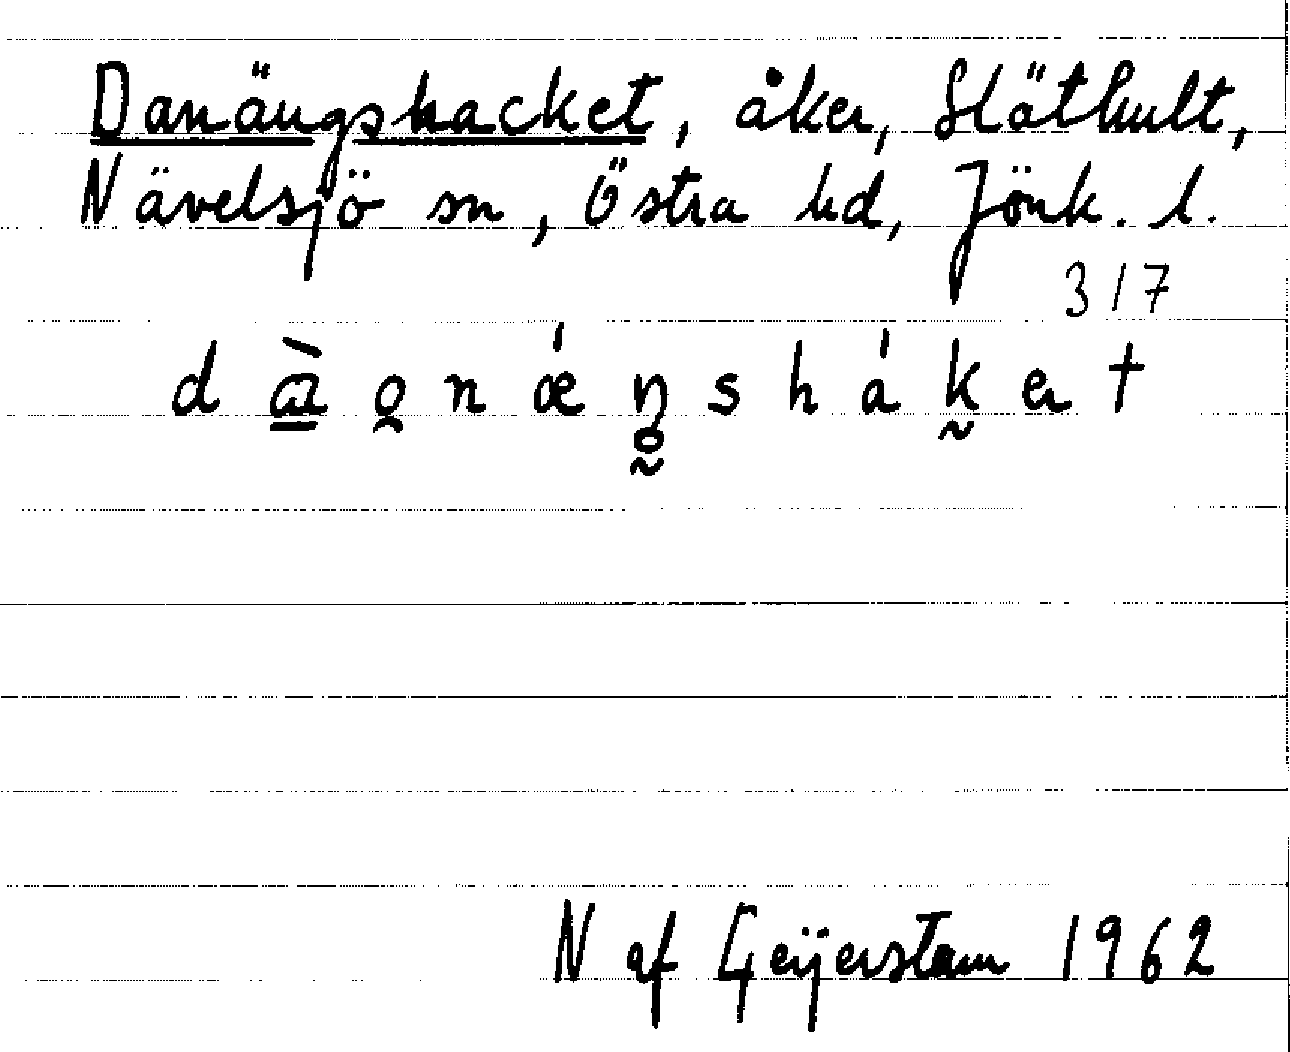 Danängshacket, åker, Släthult,
Nävelsjö sn, Östra hd, Jönk. l.
317
N af Geijerstam 1962